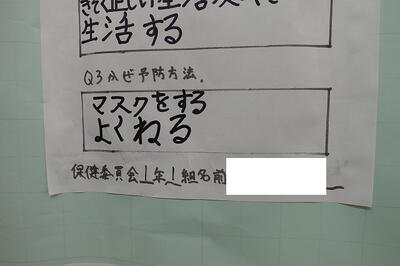 きそく正しい生活
生活する
Q3かぜ予防方法。
マスクをする
よくねる
保健委員会1年1組名前